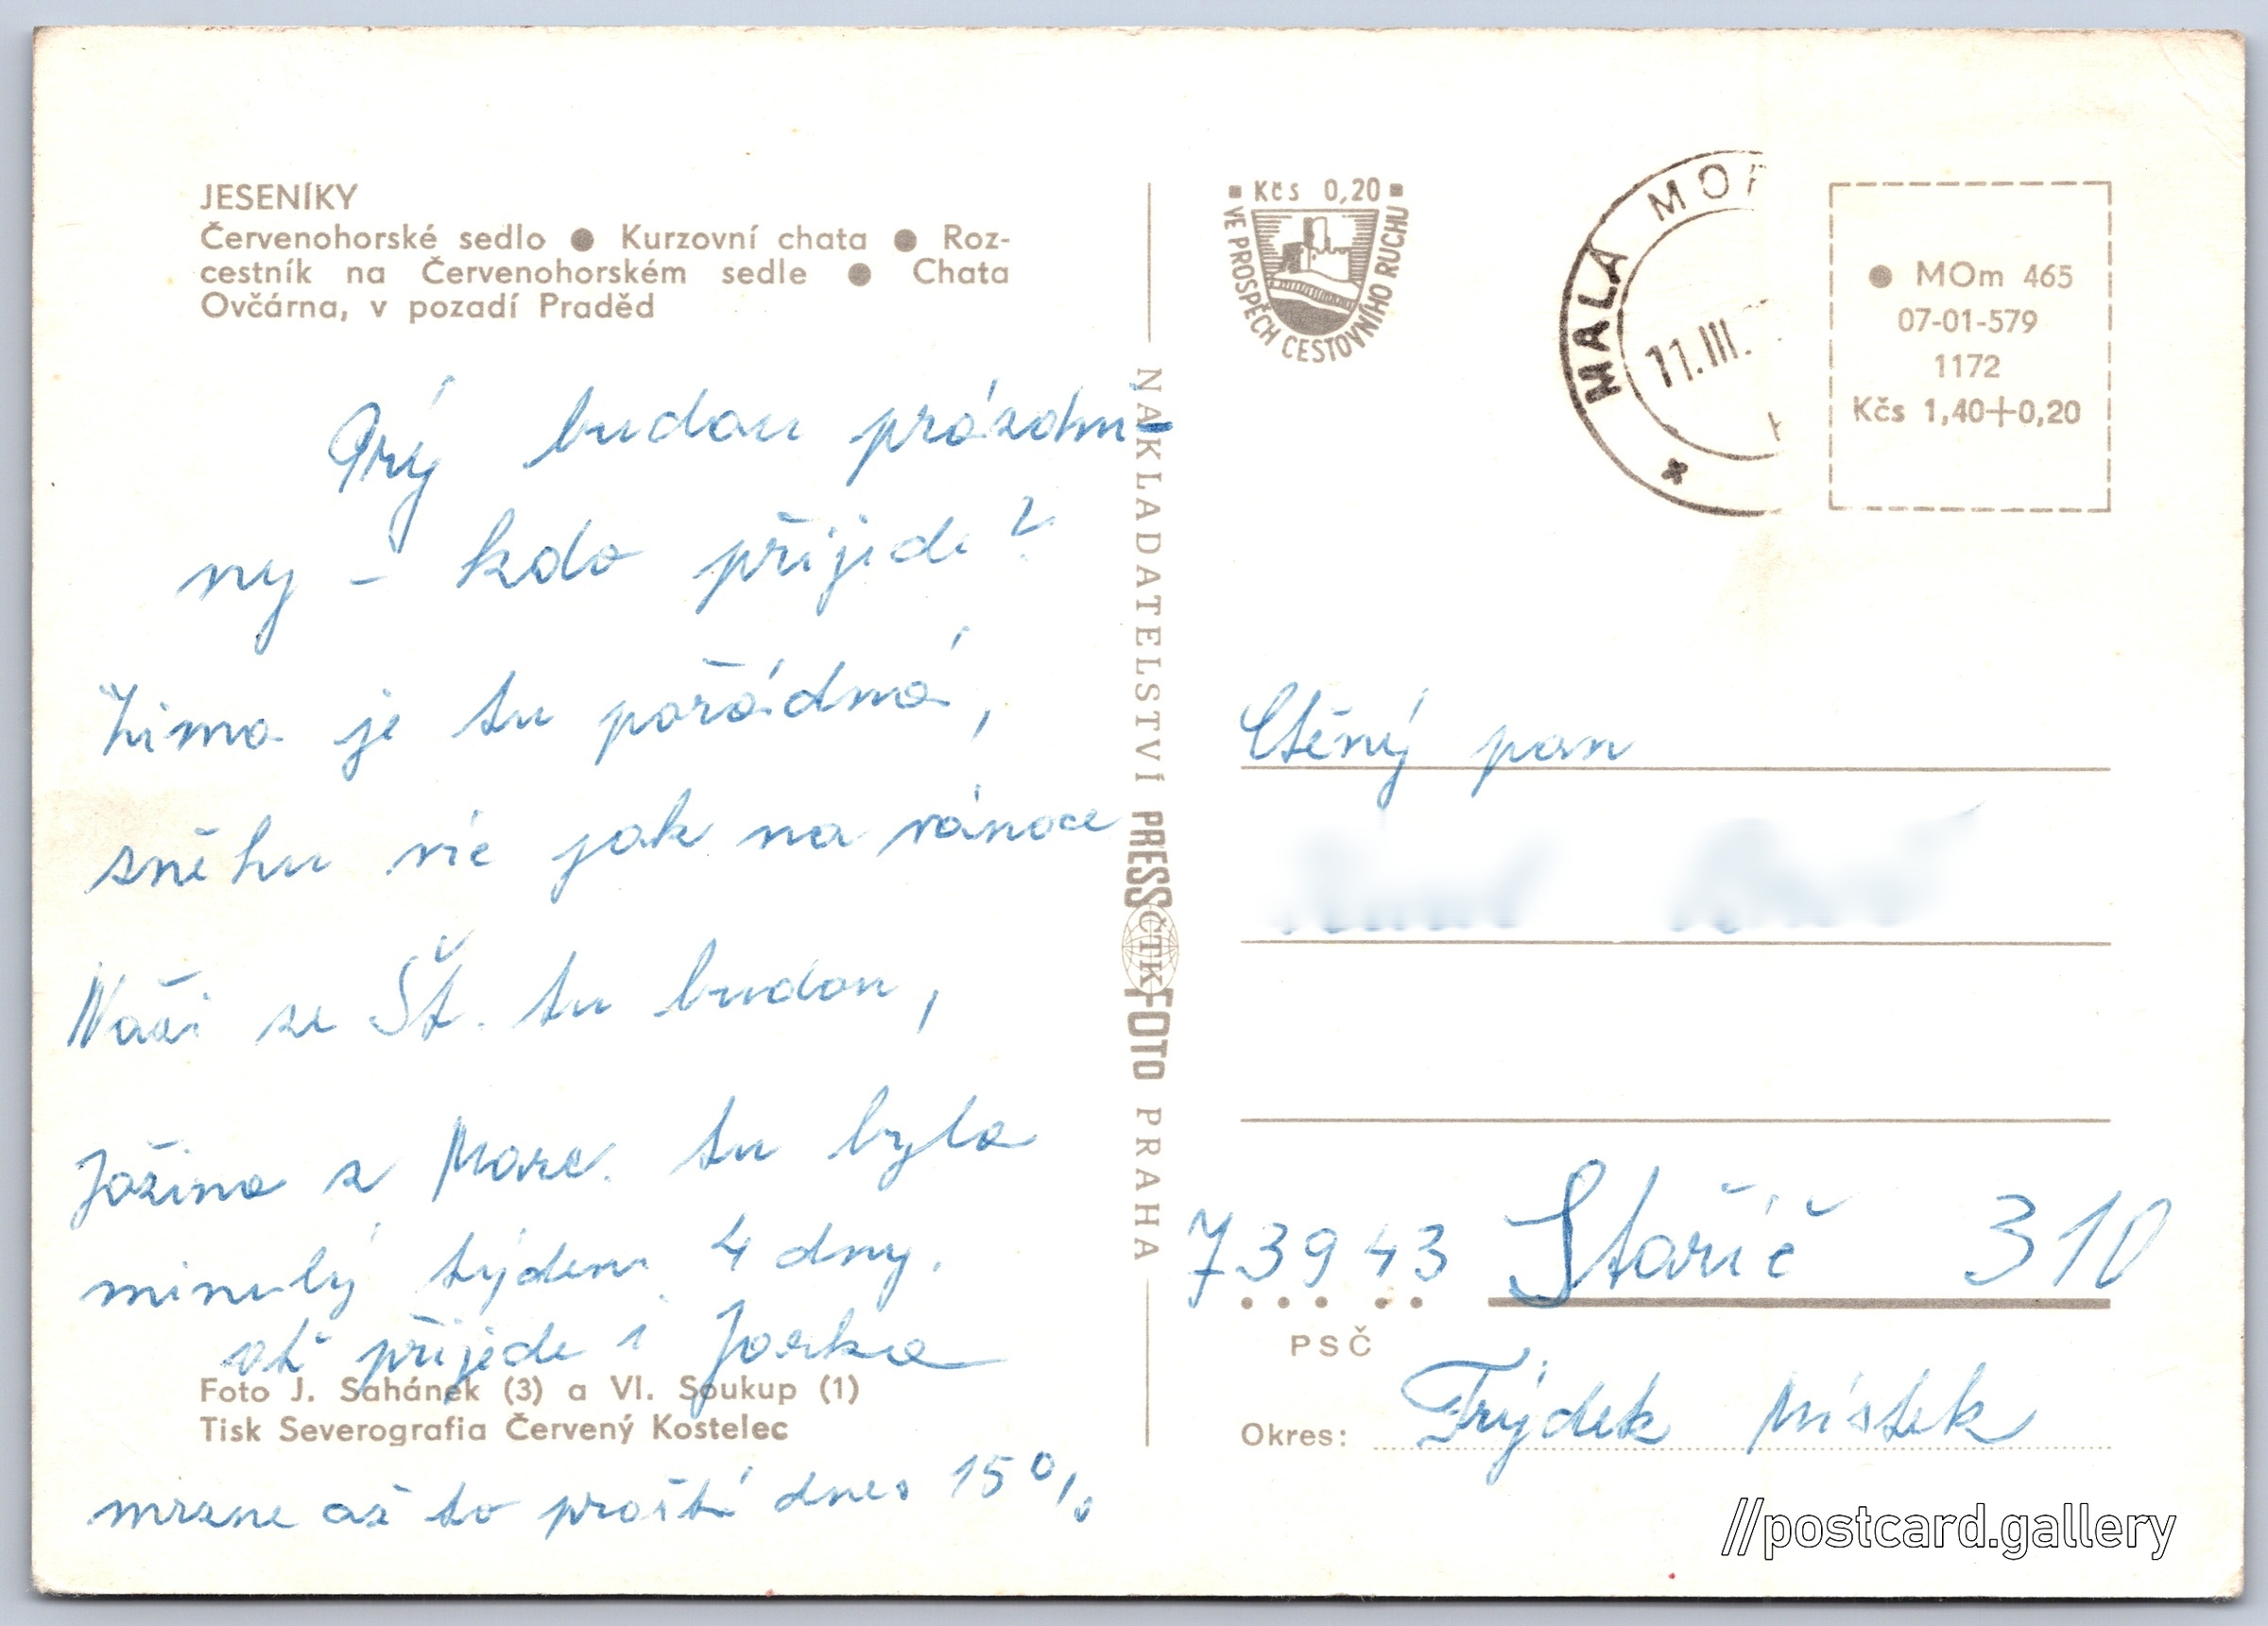 JESENÍKY
Červenohorské sedlo ● Kurzovní chata ● Roz-
cestník na Červenohorském sedle ● Chata
Ovčárna, v pozadí Praděd
Prý budou prázdni-
ny – kdo přijede?
Zima je tu pořádná,
sněhu víc jak na vánoce
Naši ze Št. tu budou,
Jožina z Morc. tu byla
minulý týden 4 dny.
ať přijede i
Foto J. Sahánek (3) a Vl. Soukup (1)
Tisk Severografia Červený Kostelec
mrzne až to praští dnes 15%
NAKLADATELSTVÍ PRESSFOTO PRAHA
ČTK
Kčs 0,20
VE PROSPĚCH CESTOVNÍHO RUCHU
MALÁ MOR
11.III.
● MOm 465
07-01-579
1172
Kčs 1,40+0,20
Ctěný pan
73943 Staříč 310
PSČ
Okres: Frýdek Místek
//postcard.gallery